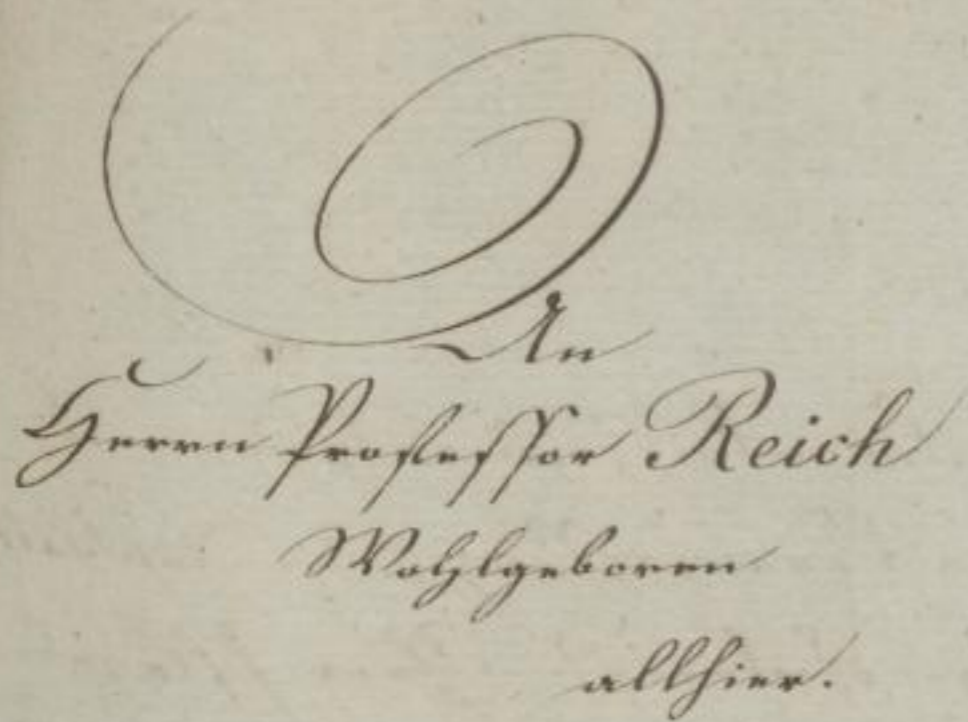 An
Herrn Professor Reich
Wohlgeboren
allhier.